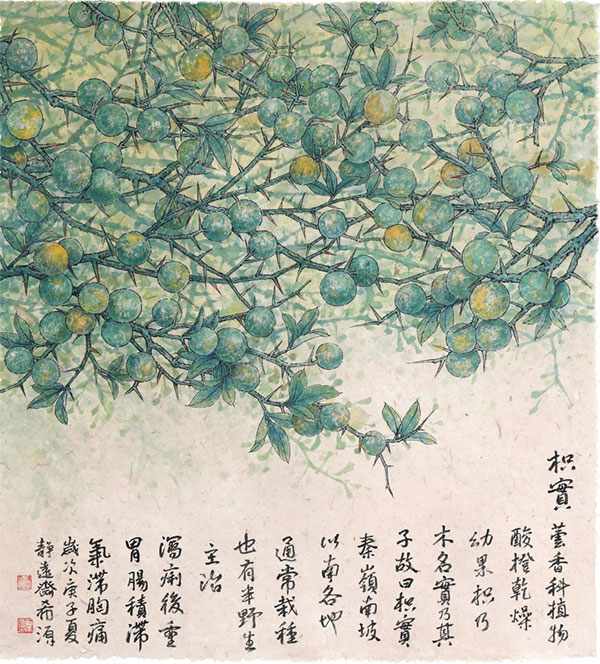 枳實
蕓香科植物
酸橙乾燥
幼果枳乃
木名實乃其
子故曰枳實
秦嶺南坡
以南各地
通常栽種
也有半野生
主治
瀉痢後重
胃腸積滯
氣滯胸痛
歲次庚子夏
靜遠齋希渾